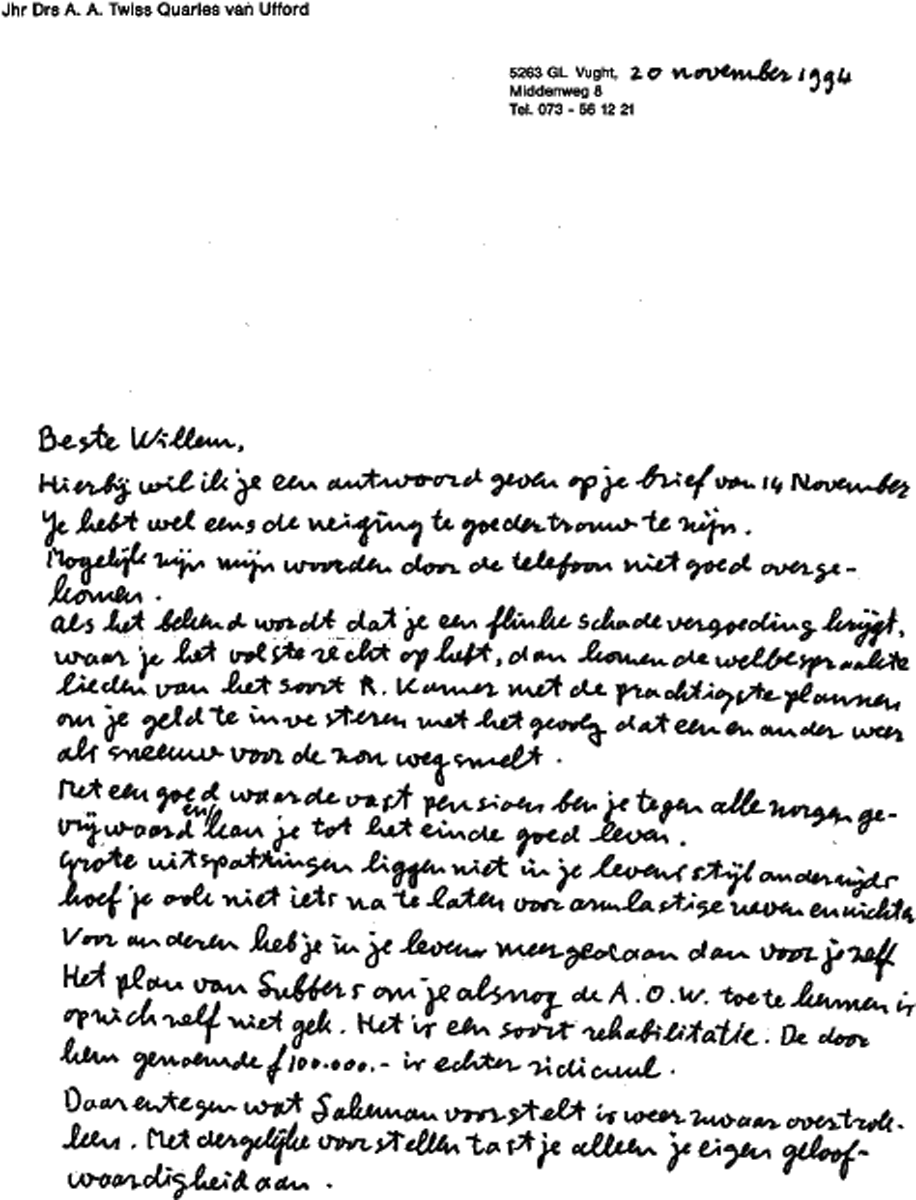 Jhr Drs A. A. Twiss Quarles van Ufford
5263 GL Vught, 20 november 1994
Middenweg 8
Tel. 073 - 56 12 21
Beste Willem,
Hierbij wil ik je een antwoord geven op je brief van 14 November
Je hebt wel eens de neiging te goeder trouw te zijn.
Mogelijk zijn mijn woorden door de telefoon niet goed overge-
komen.
Als het bekend wordt dat je een flinke schadevergoeding krijgt,
waar je het volste recht op hebt, dan komen de welbespraakte
lieden van het soort R. Kamer met de prachtigste plannen
om je geld te investeren met het gevolg dat een en ander weer
als sneeuw voor de zon wegsmelt.
Met een goed waardevast pensioen ben je tegen alle zorgen ge-
vrijwaard en/ kan je tot het einde goed leven.
Grote uitspattingen liggen niet in je levensstijl anderzijds
hoef je ook niet iets na te laten voor armlastige neven en nichten
Voor anderen heb je in je leven meer gedaan dan voor jezelf
Het plan van Lubbers om je alsnog de A.O.W. toe te kennen is
op zich zelf niet gek. Het is een soort rehabilitatie. De door
hem genoemde f 100.000.- is echter ridicuul.
Daarentegen wat Sakeman voorstelt is weer zwaar overtrok-
ken. Met dergelijke voorstellen tast je alleen je eigen geloof-
waardigheid aan.